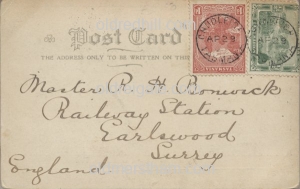 Post Card
THE ADDRESS ONLY TO BE WRITTEN ON THIS
Master R. H. Bonwick
Railway Station
Earlswood
Surrey
England